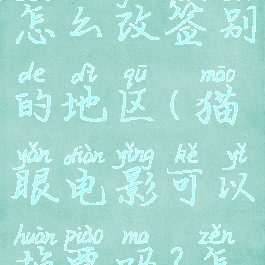 怎么改签别
de dì qū māo
的地区(猫
yǎn diàn yǐng kě yǐ
眼电影可以
huàn piào ma zěn
换票吗?怎